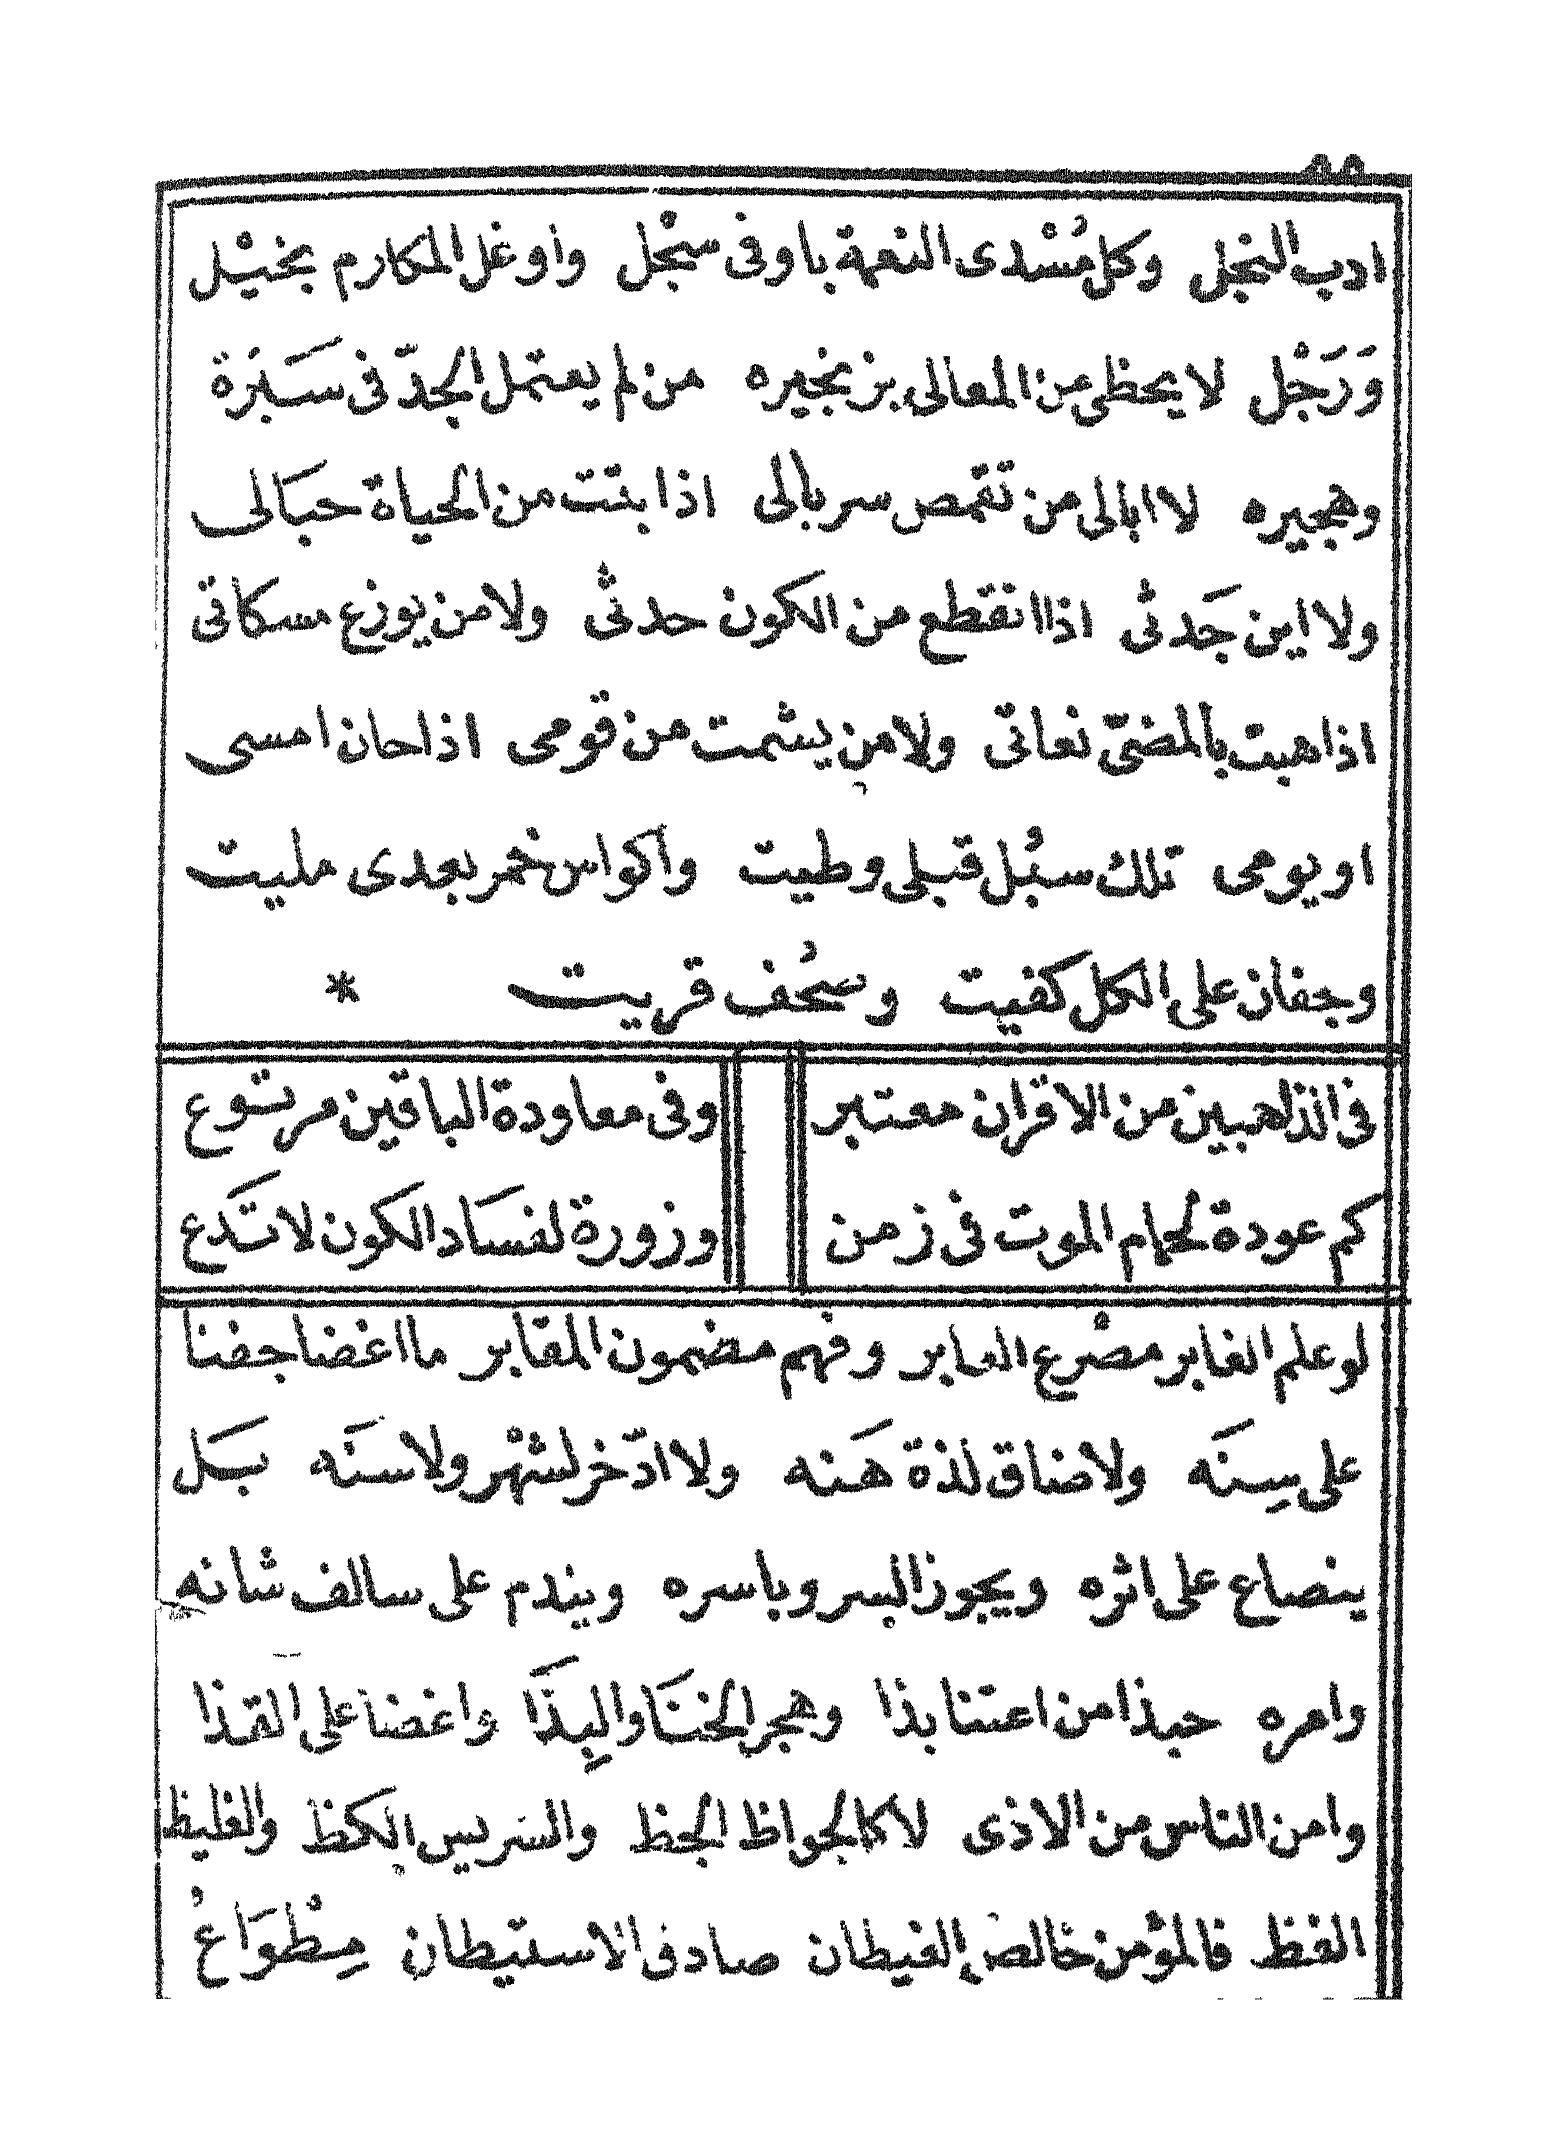 ادب النجل وكل مُسْدى النعمة باوفى سجْل واوغل المكارم بخيْل
وَرَجْل لا يحظى من المعالى بزنجيره من لم يعتمل الجدّ فى سَبْرَة
وهجيره لا ابالى من تقمص سربالى اذا بتت من الحياة حبَالى
ولا اين جَدثى اذا انقطع من الكون حدثى ولا من يوزع مسكاتى
اذا هبت بالمضىّ نعاتى ولا من يشمت من قومى اذا حان امسى
او يومى تلك سبُل قبلى وطيت واكواس خمر بعدى مليت
وجفان على الكل كفيت وسحُف قريت *
فى الذاهبين من الاقران معتبر وفى معاودة الباقين مرتوع
كم عودة لحمام الموت فى زمن وزورة لفسَاد الكون لا تَدع
لو علم الغابر مصْرع العابر وفهم مضمون المقابر ما اغضا جفنا
على سِنَه ولا ضاق لذة هَنه ولا ادّخر لشهْر ولا سنَه بَل
ينصاع على اثره ويجوز اليسر وباسره ويندم على سالف شانه
وامره حبذا من اعتنا بذا وهجر الخنَا والبِذَا واغضا على القذا
وامن الناس من الاذى لا كالجواظ الجظ والشريس الكظ والغليظ
الفظ فالمؤمن خالص الغيطان صادفى الاستيطان مِطْوَاعُ